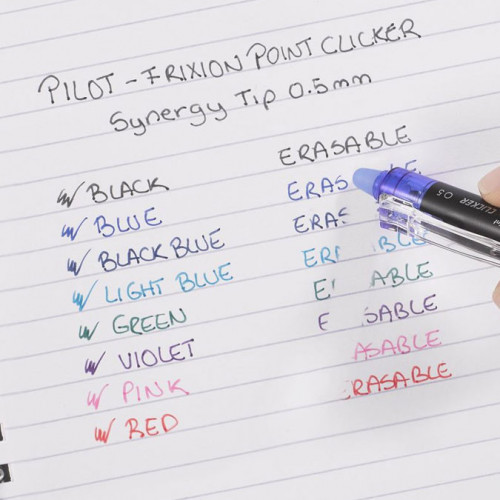 PILOT - FRIXION POINT CLICKER
Synergy Tip 0.5mm
ERASABLE
BLACK ERAS LE
BLUE ERAS
BLACK BLUE ERI BLE
LIGHT BLUE E ABLE
GREEN E SABLE
VIOLET ASABLE
PINK ERASABLE
RED
CLICKER 0.5